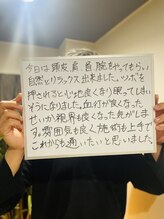 今日は頭皮、肩、首、腕をやってもらい
自然とリラックス出来ました。ツボを
押されると心地良くなり眠ってしまい
そうになりました。血行が良くなった
せいか視界も良くなった気がしま
す。雰囲気も良く施術も上手で
これからも通いたいと思いました。